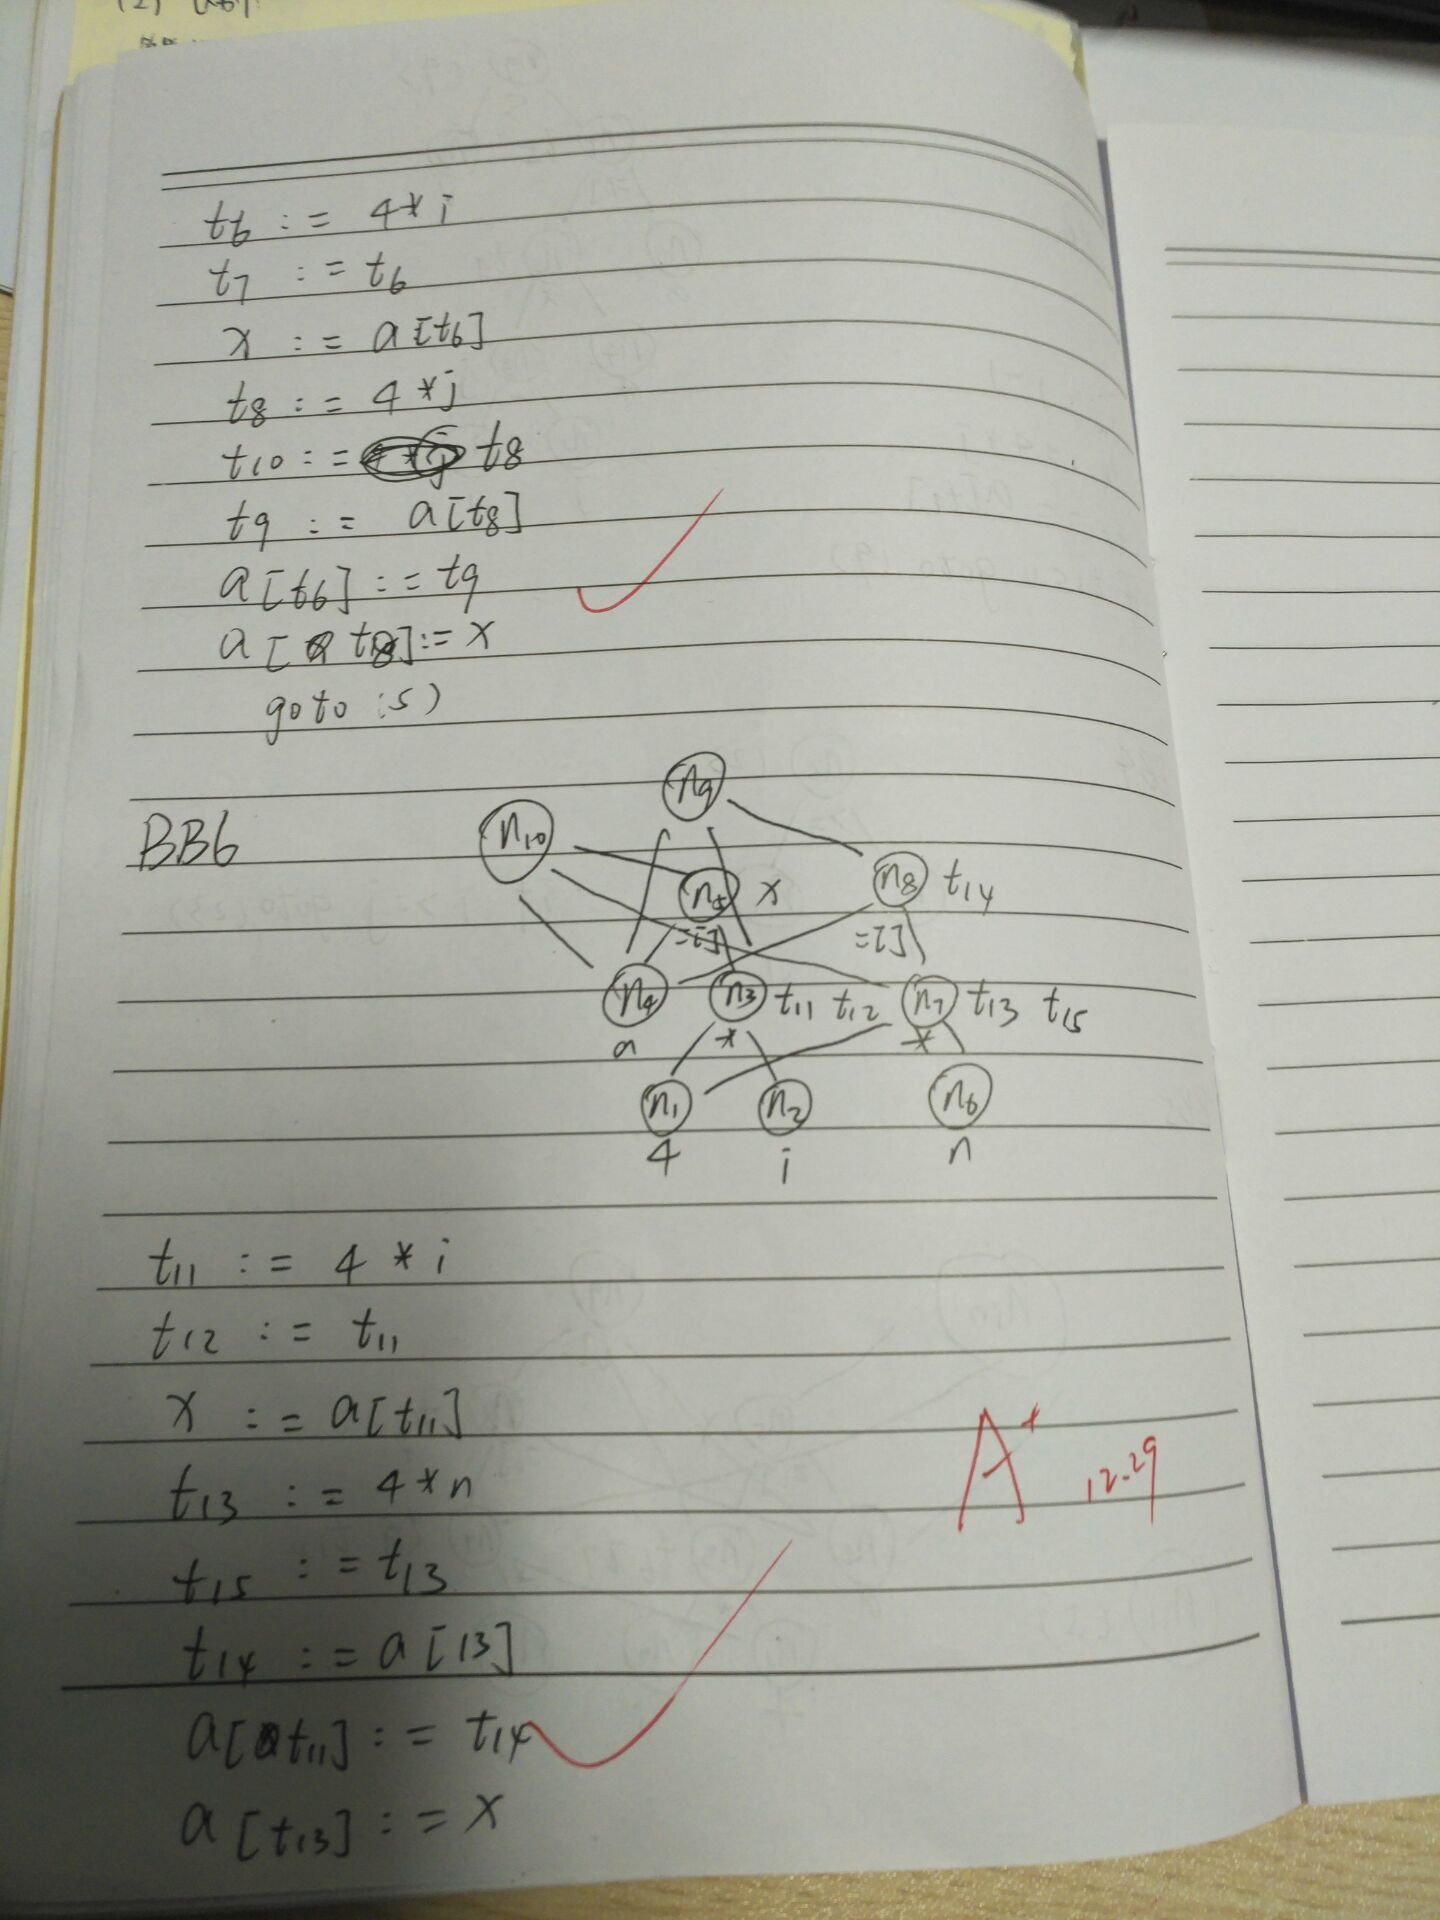 t6 := 4*i
t7 := t6
x := a[t6]
t8 := 4*j
t10 := t8
t9 := a[t8]
a[t6] := t9
a[t8] := x
goto (5)
BB6
n9
n10
n8 t14
n5 x
=[] =[]
n4 n3 t11 t12 n7 t13 t15
a * *
n1 n2 n6
4 i n
t11 := 4 * i
t12 := t11
x := a[t11]
t13 := 4*n
t15 := t13
t14 := a[13]
a[t11] := t14
a[t13] := x
A+ 12.29